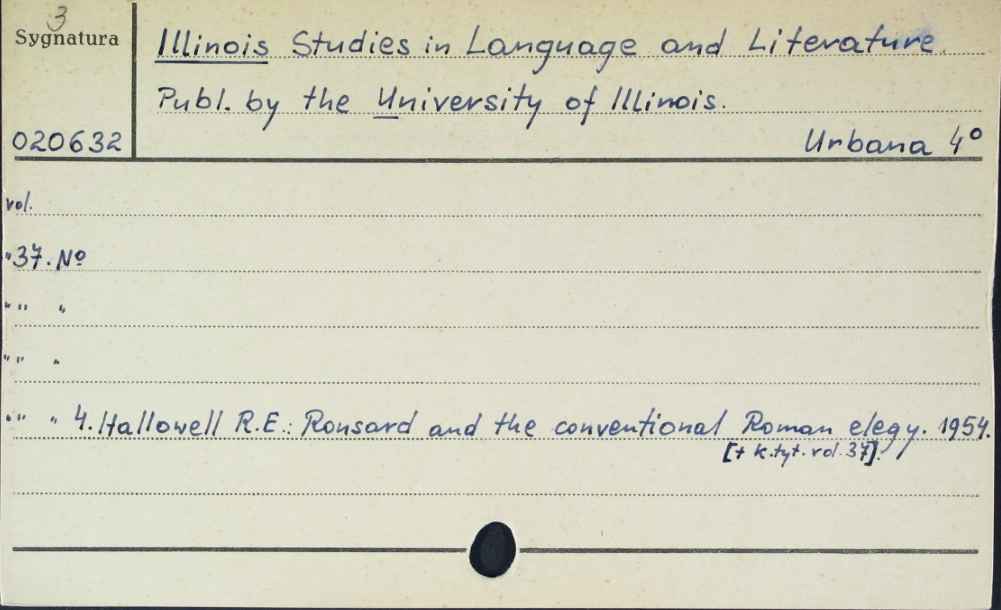 3
Sygnatura
Illinois Studies in Language and Literature
Publ. by the University of Illinois.
020632
Urbana 4º
vol.
"37. Nº
" " "
" " "
" " " 4. Hallowell R.E.: Ronsard and the conventional Roman elegy. 1954.
[+ k.tyt. vol. 37].